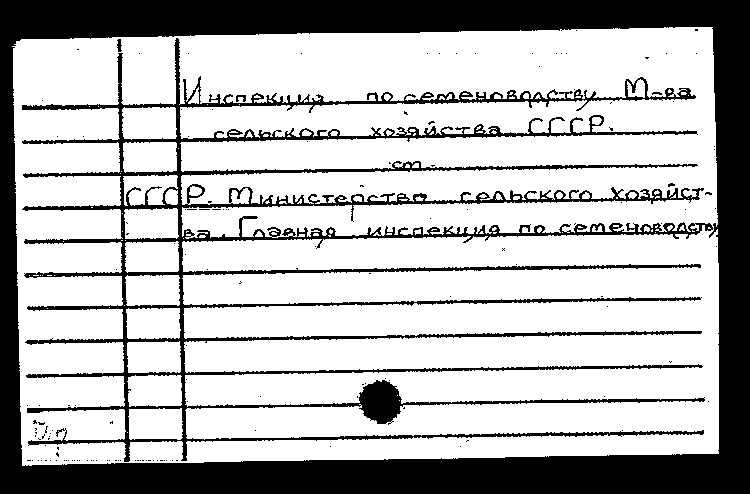 Инспекция по семеноводству М-ва
сельского хозяйства СССР.
см.
СССР. Министерство сельского хозяйст-
ва. Главная инспекция по семеноводству